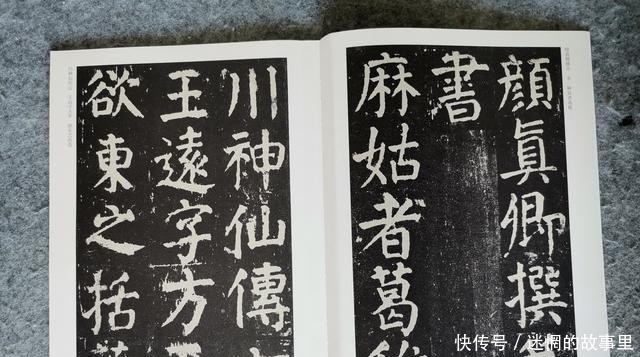 顔眞卿撰
書
麻姑者葛
川神仙傳
王遠字方
欲東之括
快传号 / 迷罔的故事里